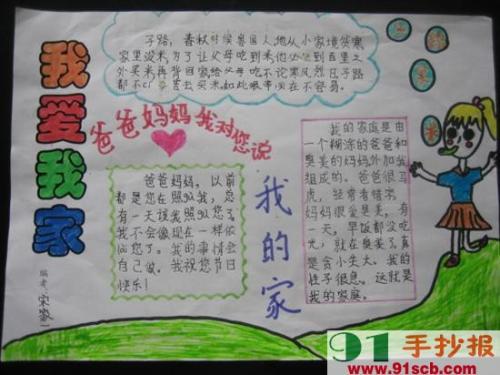 我爱我家
子路，春秋时候鲁国人。他从小家境贫寒
家里没米，为了让父母吃到米他
外买米再背回家给父母吃不论寒风烈日子路
都不
子路负米
爸爸妈妈我对您说
爸爸妈妈，以前
都是您在照顾我，总
有一天该我照顾您了
我不会像现在一样依
恼您了。我的事情会
自己做。我祝您节日
快乐！
我的家
我的家庭是由
一个糊涂的爸爸和
臭美的妈妈外加我
组成的。爸爸很马
虎，经常看错字，
妈妈很爱臭美，有一
天，早饭都没吃
光，就在臭美了真
是贪小失大。我的
性子很急。这就是
我的家庭。
编者：宋
91手抄报
www.91scb.com